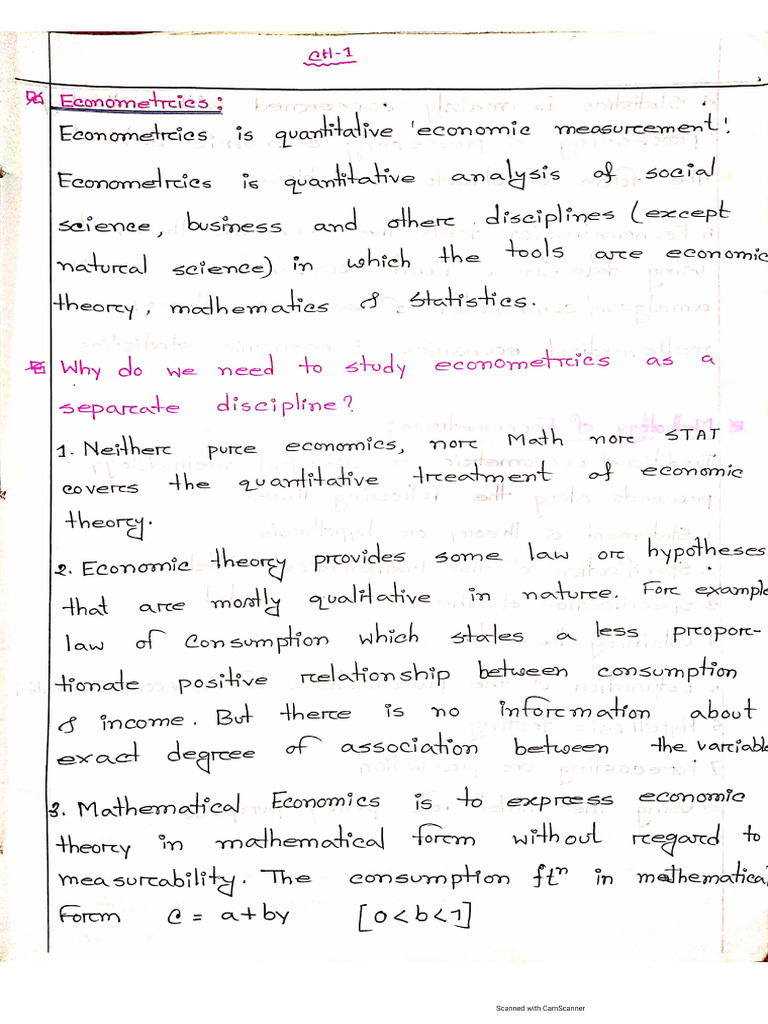 CH-1
Econometrics:
Econometrics is quantitative 'economic measurement'.
Econometrics is quantitative analysis of social
science, business and other disciplines (except
natural science) in which the tools are economic
theory, mathematics & statistics.
Why do we need to study econometrics as a
separate discipline?
1. Neither pure economics, nor Math nor STAT
covers the quantitative treatment of economic
theory.
2. Economic theory provides some law or hypotheses
that are mostly qualitative in nature. For example
law of consumption which states a less propor-
tionate positive relationship between consumption
& income. But there is no information about
exact degree of association between the variable
3. Mathematical Economics is to express economic
theory in mathematical form without regard to
measurability. The consumption ftⁿ in mathematical
Form C = a+by [0<b<1]
Scanned with CamScanner